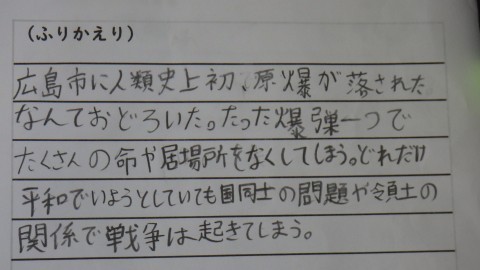 （ふりかえり）
広島市に人類史上初、原爆が落された
なんておどろいた。たった爆弾一つで
たくさんの命や居場所をなくしてしまう。どれだけ
平和でいようとしていても国同士の問題や領土の
関係で戦争は起きてしまう。